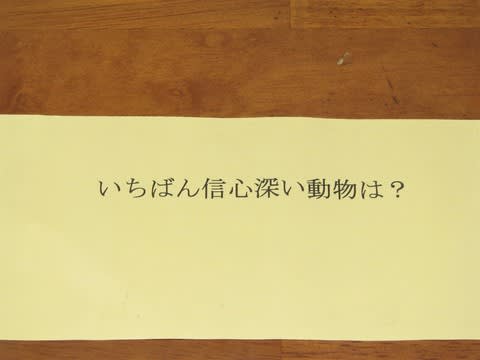 いちばん信心深い動物は？